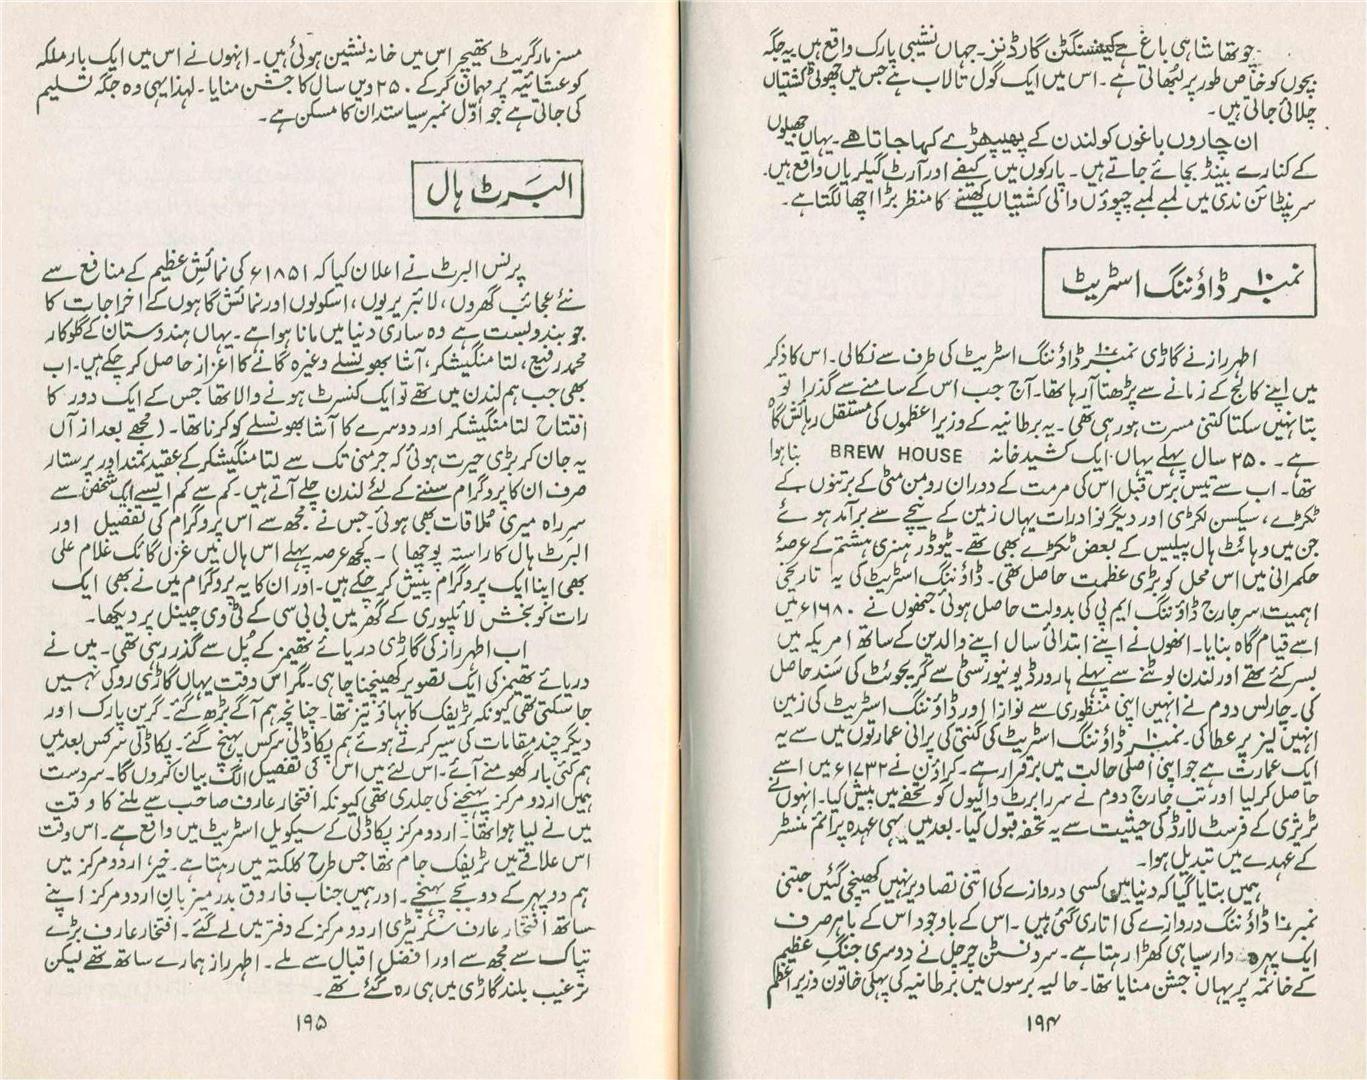 چوتھا شاہی باغ ہے کینسنگٹن گارڈنز۔ جہاں نشیبی پارک واقع ہیں یہ جگہ
بچوں کو خاص طور پر لبھاتی ہے۔ اس میں ایک گول تالاب ہے جس میں چھوٹی کشتیاں
چلائی جاتی ہیں۔
ان چاروں باغوں کو لندن کے پھیپھڑے کہا جاتا ہے۔ یہاں جھیلوں
کے کنارے بینڈ بجائے جاتے ہیں۔ پارکوں میں کیفے اور آرٹ گیلریاں واقع ہیں۔
سرپنٹائن ندی میں لمبے لمبے چپوؤں والی کشتیاں کھینے کا منظر بڑا اچھا لگتا ہے۔
نمبر ۱۰ ڈاؤننگ اسٹریٹ
اطہر راز نے گاڑی نمبر ۱۰ ڈاؤننگ اسٹریٹ کی طرف سے نکالی۔ اس کا ذکر
میں اپنے کالج کے زمانے سے پڑھتا آرہا تھا۔ آج جب اس کے سامنے سے گذرا تو
بتا نہیں سکتا کتنی مسرت ہو رہی تھی۔ یہ برطانیہ کے وزیر اعظموں کی مستقل رہائش گاہ
ہے۔ ۲۵۰ سال پہلے یہاں ایک کشید خانہ BREW HOUSE بنا ہوا
تھا۔ اب سے تیس برس قبل اس کی مرمت کے دوران رومن مٹی کے برتنوں کے
ٹکڑے، سیکسن لکڑی اور دیگر نوادرات یہاں زمین کے نیچے سے برآمد ہوئے
جن میں وہائٹ ہال پیلیس کے بعض ٹکڑے بھی تھے۔ ٹیوڈر ہنری ہشتم کے عرصۂ
حکمرانی میں اس محل کو بڑی عظمت حاصل تھی۔ ڈاؤننگ اسٹریٹ کی یہ تاریخی
اہمیت سر جارج ڈاؤننگ ایم پی کی بدولت حاصل ہوئی جنھوں نے ۱۶۸۰ء میں
اسے قیام گاہ بنایا۔ انھوں نے اپنے ابتدائی سال اپنے والدین کے ساتھ امریکہ میں
بسر کئے تھے اور لندن لوٹنے سے پہلے ہارورڈ یونیورسٹی سے گریجوئٹ کی سند حاصل
کی۔ چارلس دوم نے انہیں اپنی منظوری سے نوازا اور ڈاؤننگ اسٹریٹ کی زمین
انہیں لیز پر عطا کی۔ نمبر ۱۰ ڈاؤننگ اسٹریٹ کی گنتی کی پرانی عمارتوں میں سے یہ
ایک عمارت ہے جو اپنی اصلی حالت میں برقرار ہے۔ کراؤن نے ۱۷۳۲ء میں اسے
حاصل کرلیا اور تب جارج دوم نے سر رابرٹ والپول کو تحفے میں پیش کیا۔ انہوں نے
ٹریژری کے فرسٹ لارڈ کی حیثیت سے یہ تحفہ قبول کیا۔ بعد میں یہی عہدہ پرائم منسٹر
کے عہدے میں تبدیل ہوا۔
ہمیں بتایا گیا کہ دنیا میں کسی دروازے کی اتنی تصاویر نہیں کھینچی گئیں جتنی
نمبر ۱۰ ڈاؤننگ دروازے کی اتاری گئی ہیں۔ اس کے باوجود اس کے باہر صرف
ایک پہرہ دار سپاہی کھڑا رہتا ہے۔ سر ونسٹن چرچل نے دوسری جنگ عظیم
کے خاتمہ پر یہاں جشن منایا تھا۔ حالیہ برسوں میں برطانیہ کی پہلی خاتون وزیر اعظم
۱۹۴
مسز مارگریٹ تھیچر اس میں خانہ نشین ہوئی ہیں۔ انہوں نے اس میں ایک بار ملکہ
کو عشائیہ پر مہمان کر کے ۲۵۰ ویں سال کا جشن منایا۔ لہذا یہی وہ جگہ تسلیم
کی جاتی ہے جو اوّل نمبر سیاستدان کا مسکن ہے۔
البرٹ ہال
پرنس البرٹ نے اعلان کیا کہ ۱۸۵۱ء کی نمائشِ عظیم کے منافع سے
نئے عجائب گھروں، لائبریریوں، اسکولوں اور نمائش گاہوں کے اخراجات کا
جو بندوبست ہے وہ ساری دنیا میں مانا ہوا ہے۔ یہاں ہندوستان کے گلوکار
محمد رفیع، لتا منگیشکر، آشا بھونسلے وغیرہ گانے کا اعزاز حاصل کر چکے ہیں۔ اب
بھی جب ہم لندن میں تھے تو ایک کنسرٹ ہونے والا تھا جس کے ایک دور کا
افتتاح لتا منگیشکر اور دوسرے کا آشا بھونسلے کو کرنا تھا۔ (مجھے بعد از آں
یہ جان کر بڑی حیرت ہوئی کہ جرمنی تک سے لتا منگیشکر کے عقیدتمند اور پرستار
صرف ان کا پروگرام سننے کے لئے لندن چلے آتے ہیں۔ کم سے کم ایسے ایک شخص سے
سرراہ میری ملاقات بھی ہوئی۔ جس نے مجھ سے اس پروگرام کی تفصیل اور
البرٹ ہال کا راستہ پوچھا)۔ کچھ عرصہ پہلے اس ہال میں غزل گائک غلام علی
بھی اپنا ایک پروگرام پیش کر چکے ہیں۔ اور ان کا یہ پروگرام میں نے بھی ایک
رات کو بخش لائلپوری کے گھر میں بی بی سی کے ٹی وی چینل پر دیکھا۔
اب اطہر راز کی گاڑی دریائے تھیمز کے پُل سے گذر رہی تھی۔ میں نے
دریائے تھیمز کی ایک تصویر کھینچنا چاہی۔ مگر اس وقت یہاں گاڑی روکی نہیں
جا سکتی تھی کیونکہ ٹریفک کا بہاؤ تیز تھا۔ چنانچہ ہم آگے بڑھ گئے۔ گرین پارک اور
دیگر چند مقامات کی سیر کرتے ہوئے ہم پکاڈلی سرکس پہنچ گئے۔ پکاڈلی سرکس بعد میں
ہم کئی بار گھومنے آئے۔ اس لئے میں اس کی تفصیل الگ بیان کروں گا۔ سردست
ہمیں اردو مرکز پہنچنے کی جلدی تھی کیونکہ افتخار عارف صاحب سے ملنے کا وقت
میں نے لیا ہوا تھا۔ اردو مرکز پکاڈلی کے سیکویل اسٹریٹ میں واقع ہے۔ اس وقت
اس علاقے میں ٹریفک جام تھا جس طرح کلکتہ میں رہتا ہے۔ خیر، اردو مرکز میں
ہم دوپہر کے دو بجے پہنچے۔ اور ہمیں جناب فاروق بدر میزبان اردو مرکز اپنے
ساتھ افتخار عارف سکریٹری اردو مرکز کے دفتر میں لے گئے۔ افتخار عارف بڑے
تپاک سے مجھ سے اور افضل اقبال سے ملے۔ اطہر راز ہمارے ساتھ تھے لیکن
ترغیب بلند گاڑی میں ہی رہ گئے تھے۔
۱۹۵